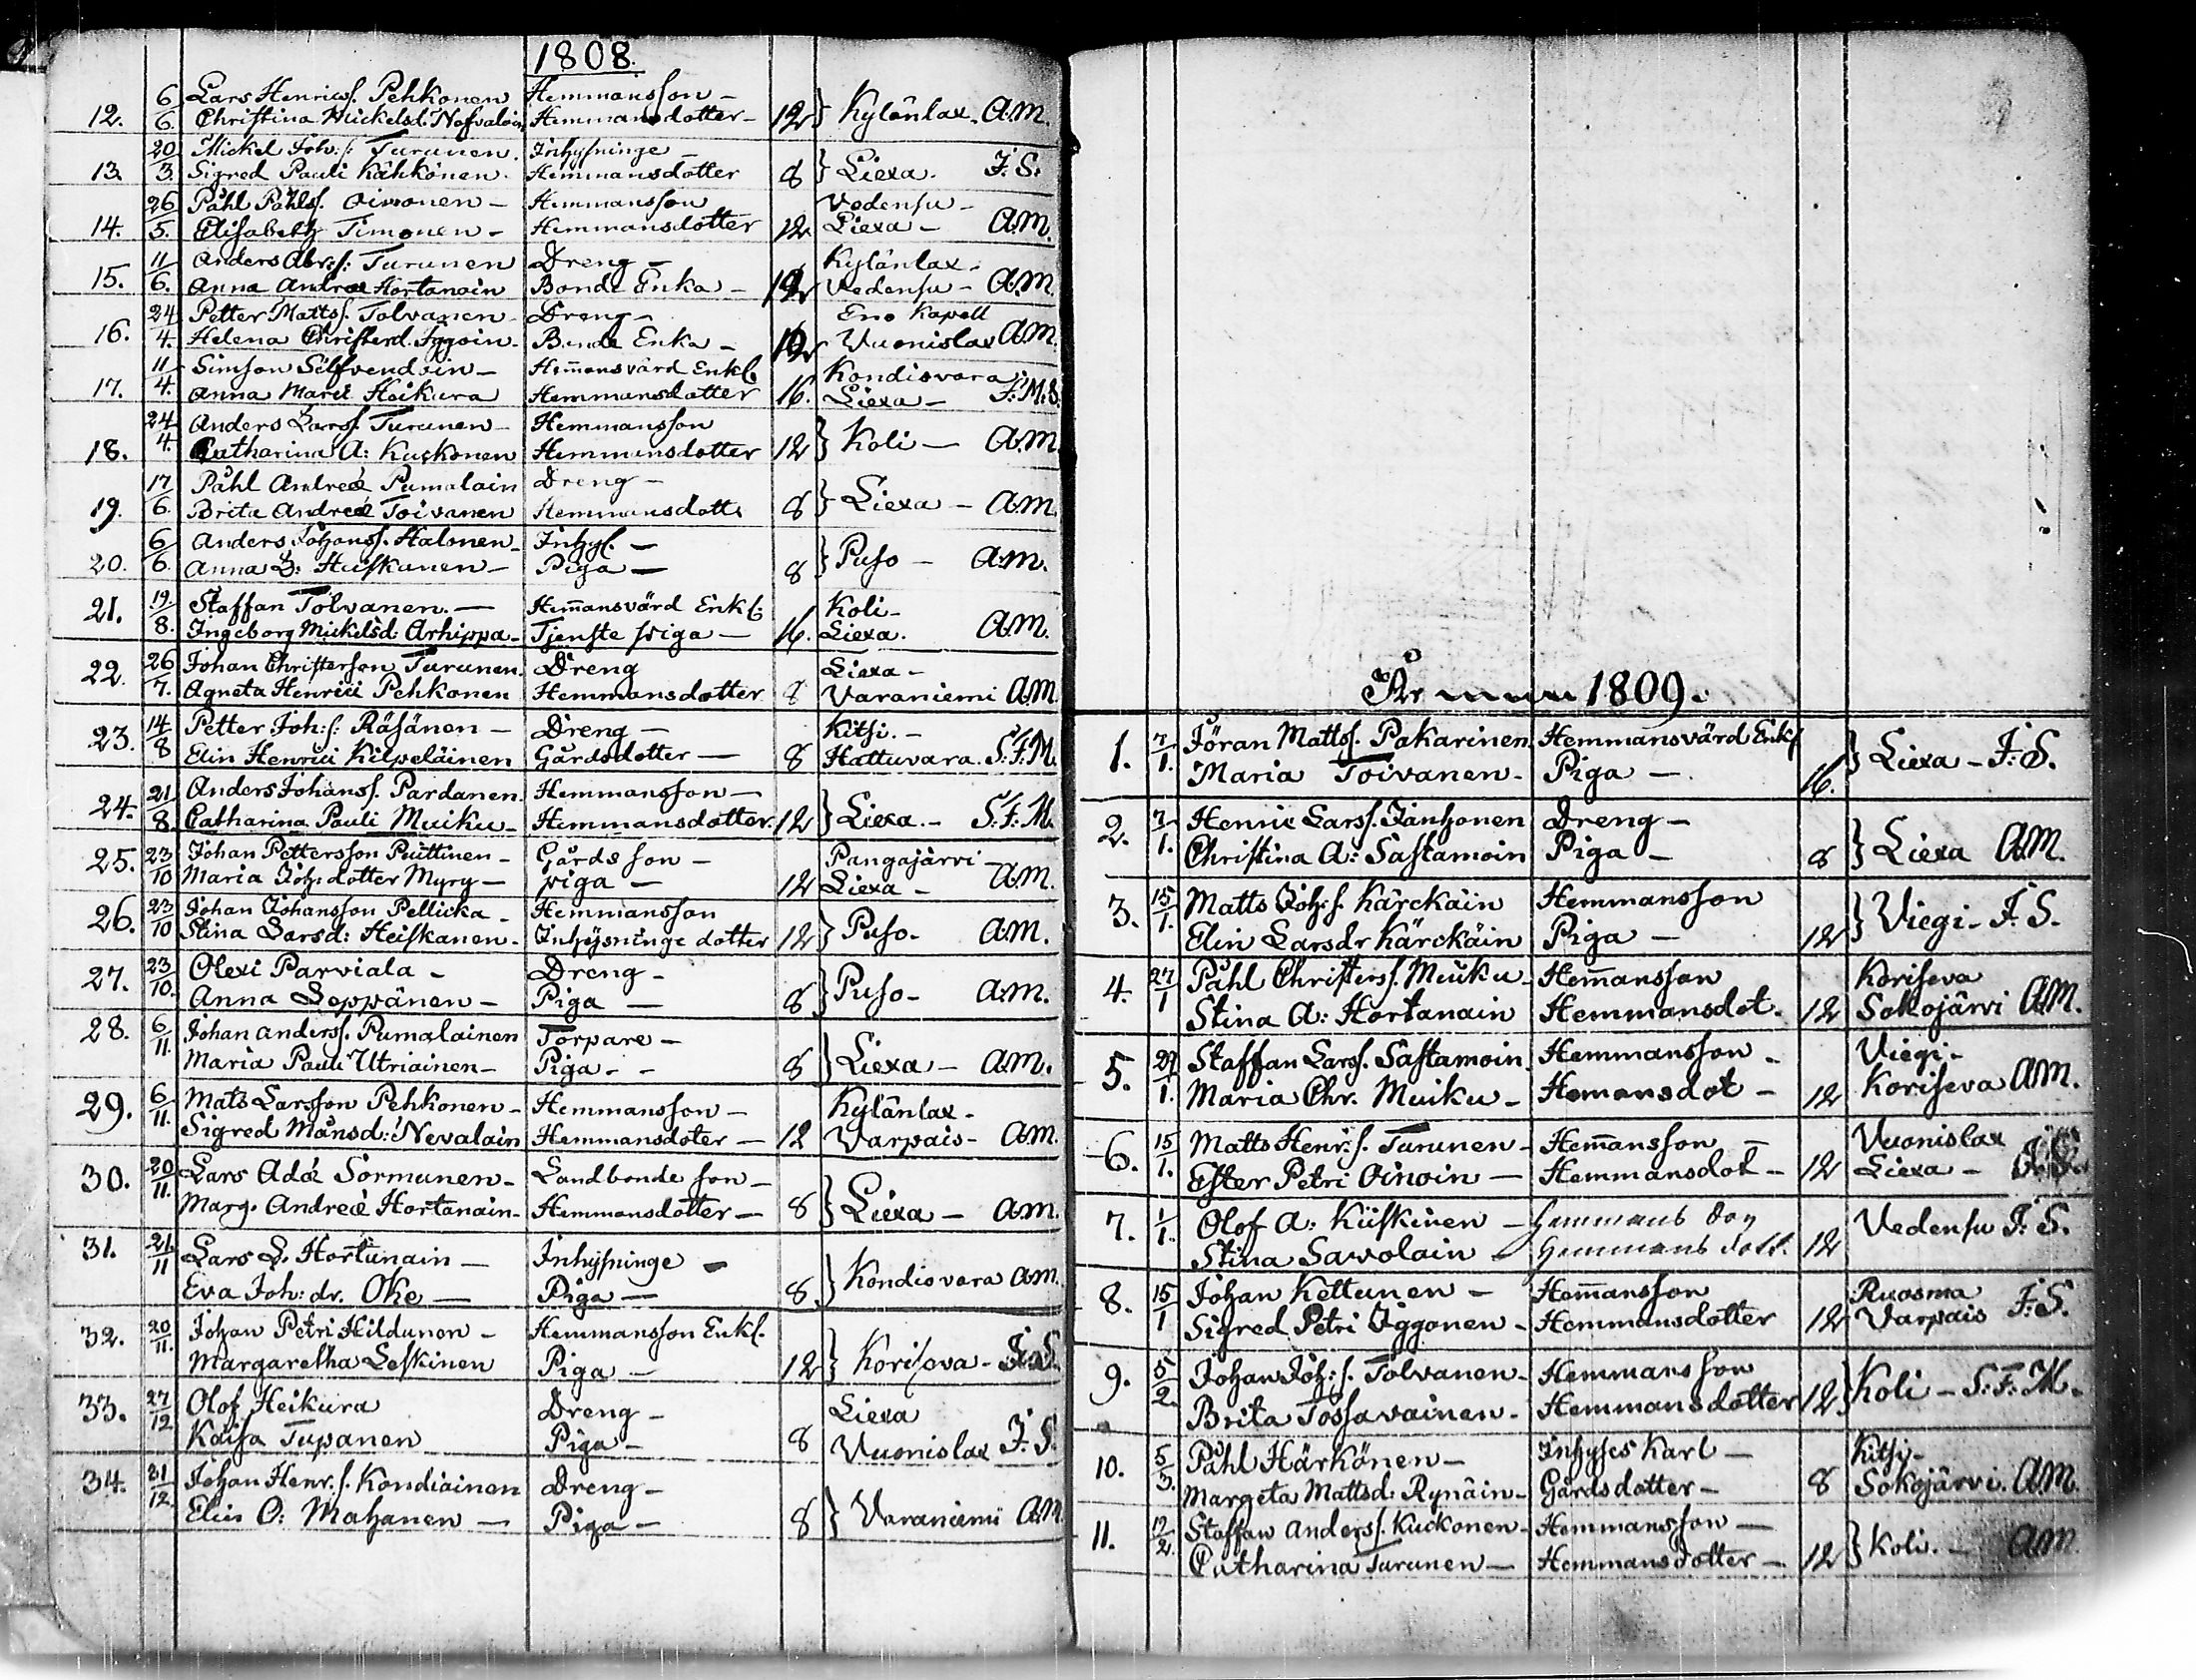 1808.
12. 6/6. Lars Henrics. Pehkonen Hemmansson – 12 } Kylänlax. A.M.
Christina Mickelsd. Nefvalain Hemmansdotter –
13. 20/3. Mickel Joh:s: Turunen. Inhysninge – 8 } Liexa. J:S.
Sigred Pauli Kähkönen. Hemmansdotter
14. 26/5. Påhl Påhls. Oinonen – Hemmansson Vedensu –
Elisabeth Timonen – Hemmansdotter 12 Liexa – A.M.
15. 11/6. Anders Abr:s: Turunen Dreng – Kylänlax –
Anna Andreæ Hortanain Bonde Enka – 12 Vedensu – A.M.
16. 24/4. Petter Matts. Tolvanen – Dreng – Eno Kapell
Helena Christerd. Iggoin – Bonde Enka – Vuonislax A.M.
17. 11/4. Simson Silfvendoin – Hem̄ansvärd Enkl. Kondiovara
Anna Marci Heikura Hemmansdotter 16. Liexa – F:M:S.
18. 24/4. Anders Lars. Turunen – Hemmansson 12 } Koli – A.M.
Catharina A: Kuckonen Hemmansdotter
19. 17/6. Påhl Andreæ Pumalain Dreng – 8 } Liexa – A.M.
Brita Andreæ Toivanen Hemmansdott.
20. 6/6. Anders Johanss. Halonen – Inhys. – 8 } Puso – A.M.
Anna L: Heiskanen – Piga –
21. 19/8. Staffan Tolvanen. – Hem̄ansvärd Enkl: Koli –
Ingeborg Mickelsd: Arhippa – Tjenste piga – 16. Liexa. A.M.
22. 26/7. Johan Christerson Turunen. Dreng Liexa –
Agneta Henrici Pehkonen Hemmansdotter 8 Varaniemi A.M.
23. 14/8 Petter Joh:s: Räsänen – Dreng – Kitsi. –
Elin Henrici Kilpeläinen Gårdsdotter – 8 Hattuvara. S:F:M.
24. 21/8 Anders Johans. Pardanen. Hemmansson – 12 } Liexa. – S:F:M.
Catharina Pauli Muiku – Hemmansdotter.
25. 23/10 Johan Pettersson Puittinen – Gårds son – Pangajärvi –
Maria Joh: dotter Myry – piga – 12 Liexa – A.M.
26. 23/10 Johan Johansson Pellicka – Hemmansson 12 } Puso – A.M.
Stina Larsd: Heiskanen – Inhysninge dotter
27. 23/10. Olexi Parviala – Dreng – 8 } Puso – A.M.
Anna Leppänen – Piga –
28. 6/11. Johan Anderss. Pumalainen Torpare – 8 } Liexa – A.M.
Maria Pauli Utriainen – Piga – –
29. 6/11. Mats Larsson Pehkonen – Hemmansson – Kylänlax –
Sigred Månsd: Nevalain Hemmansdoter – 12 Varpais – A.M.
30. 20/11. Lars Adæ Sormunen – Landbonde son – 8 } Liexa – A.M.
Marg. Andreæ Hortanain – Hemmansdotter –
31. 21/11 Lars L. Hortunain – Inhysninge – 8 } Kondiovara A.M.
Eva Joh: dr. Oke – Piga –
32. 20/11. Johan Petri Hildunen – Hemmansson Enkl. 12 } Koriseva – J:S.
Margaretha Leskinen Piga –
33. 27/12. Olof Heikura Dreng – Liexa
Kaisa Tupanen Piga – 8 Vuonislax J:S.
34. 31/12. Johan Henr.s. Kondiainen Dreng – 8 } Varaniemi A.M.
Elin O: Mahanen – Piga –
År 1809.
1. 7/1. Jöran Matts. Pakarinen Hemmansvärd Enkl 16. } Liexa – J:S.
Maria Toivanen – Piga –
2. 7/1. Henric Larss. Jänhonen Dreng – 8 } Liexa A.M.
Christina A: Sastamoin Piga –
3. 15/1. Matts Joh:s. Kärckäin Hemmansson 12 } Viegi – J:S.
Elin Larsdr Kärckäin Piga –
4. 27/1 Påhl Christers. Muiku – Hem̄ansson Koriseva
Stina A: Hortanain Hemmansdot. 12 Sokojärvi A.M.
5. 27/1. Staffan Larss. Sastamoin Hemmansson – Viegi –
Maria Chr. Muiku – Hemansdot – 12 Koriseva A.M.
6. 15/1. Matts Henr:s. Turunen – Hem̄ansson – Vuonislax
Ester Petri Oinoin – Hemmansdot – 12 Liexa – J:S.
7. 1/1. Olof A: Kiiskinen – Hemmans son Vedensu J:S.
Stina Savolain – Hemmans dott. 12
8. 15/1 Johan Kettunen – Hem̄ansson Ruosma
Sigred Petri Iggonen – Hemmansdotter 12 Varpais J:S.
9. 5/2. Johan Joh:s. Tolvanen – Hemmansson 12 } Koli – S:F:M.
Brita Tossavainen – Hemmansdotter
10. 5/3. Påhl Härkönen – Inhyses Karl – Kitsi –
Margeta Mattsd: Rynäin – Gårdsdotter – 8 Sokojärvi. A.M.
11. 12/2 Staffan Anderss. Kuckonen – Hemmansson – 12 } Koli. – A.M.
Catharina Turunen – Hemmansdotter –